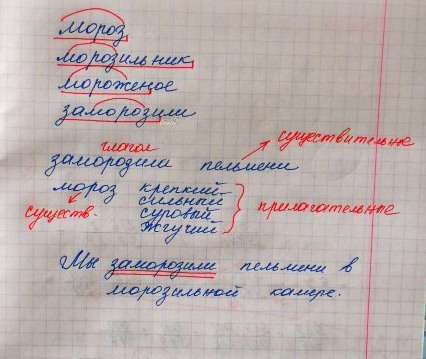 мороз
морозильник
мороженое
заморозили
глагол
существительное
заморозила пельмени
мороз крепкий
сильный
существ. суровый прилагательное
жгучий
Мы заморозили пельмени в
морозильной камере.